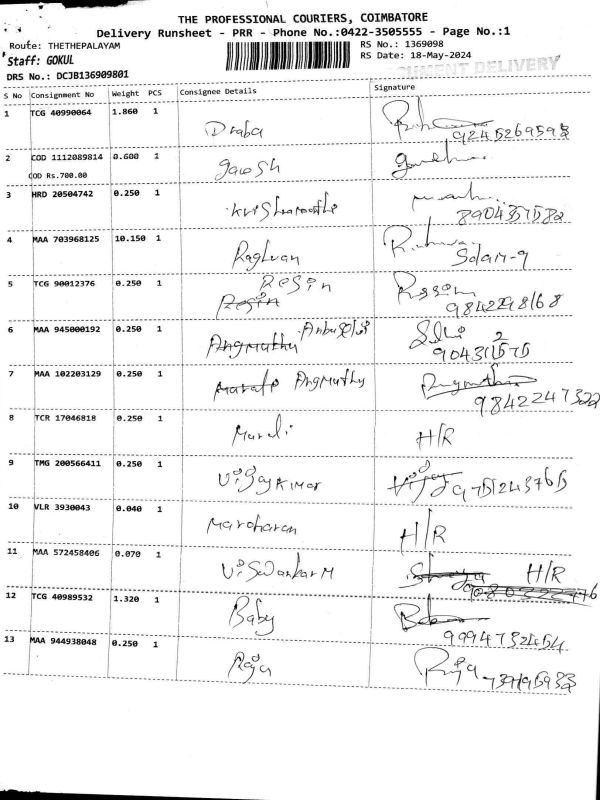 THE PROFESSIONAL COURIERS, COIMBATORE
Delivery Runsheet - PRR - Phone No.:0422-3505555 - Page No.:1
Route: THETHEPALAYAM RS No.: 1369098
Staff: GOKUL RS Date: 18-May-2024
UMENT DELIVERY
DRS No.: DCJB136909801
S No Consignment No Weight PCS Consignee Details Signature
1 TCG 40990064 1.860 1
Draba
2 COD 1112089814 0.600 1
COD Rs.700.00
3 HRD 20504742 0.250 1
4 MAA 703968125 10.150 1
Raghvan
5 TCG 90012376 0.250 1 Resin
Resin 9842298168
6 MAA 945000192 0.250 1
Angmuthu
7 MAA 102203129 0.250 1 Angmuthy
9842247322
8 TCR 17046818 0.250 1
Murali H/R
9 TMG 200566411 0.250 1
Vijaykumar Vijay
10 VLR 3930043 0.040 1
Maroharan H/R
11 MAA 572458406 0.070 1
H/R
12 TCG 40989532 1.320 1
Baby
9994732454
13 MAA 944938048 0.250 1
Raja Raja